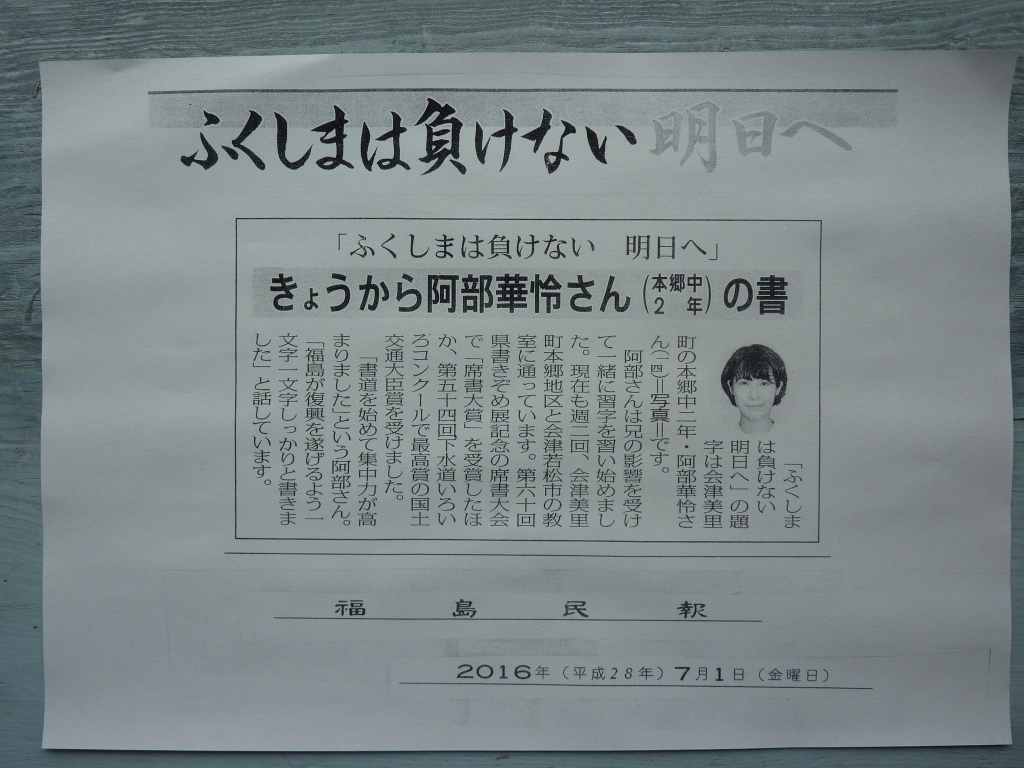 ふくしまは負けない 明日へ
「ふくしまは負けない 明日へ」
きょうから阿部華怜さん(本郷中2年)の書
「ふくしま
は負けない
明日へ」の題
字は会津美里
町の本郷中二年・阿部華怜さ
ん(一四)=写真=です。
阿部さんは兄の影響を受け
て一緒に習字を習い始めまし
た。現在も週二回、会津美里
町本郷地区と会津若松市の教
室に通っています。第六十回
県書きぞめ展記念の席書大会
で「席書大賞」を受賞したほ
か、第五十四回下水道いろい
ろコンクールで最高賞の国土
交通大臣賞を受けました。
「書道を始めて集中力が高
まりました」という阿部さん。
「福島が復興を遂げるよう一
文字一文字しっかりと書きま
した」と話しています。
福島民報
2016年(平成28年)7月1日(金曜日)